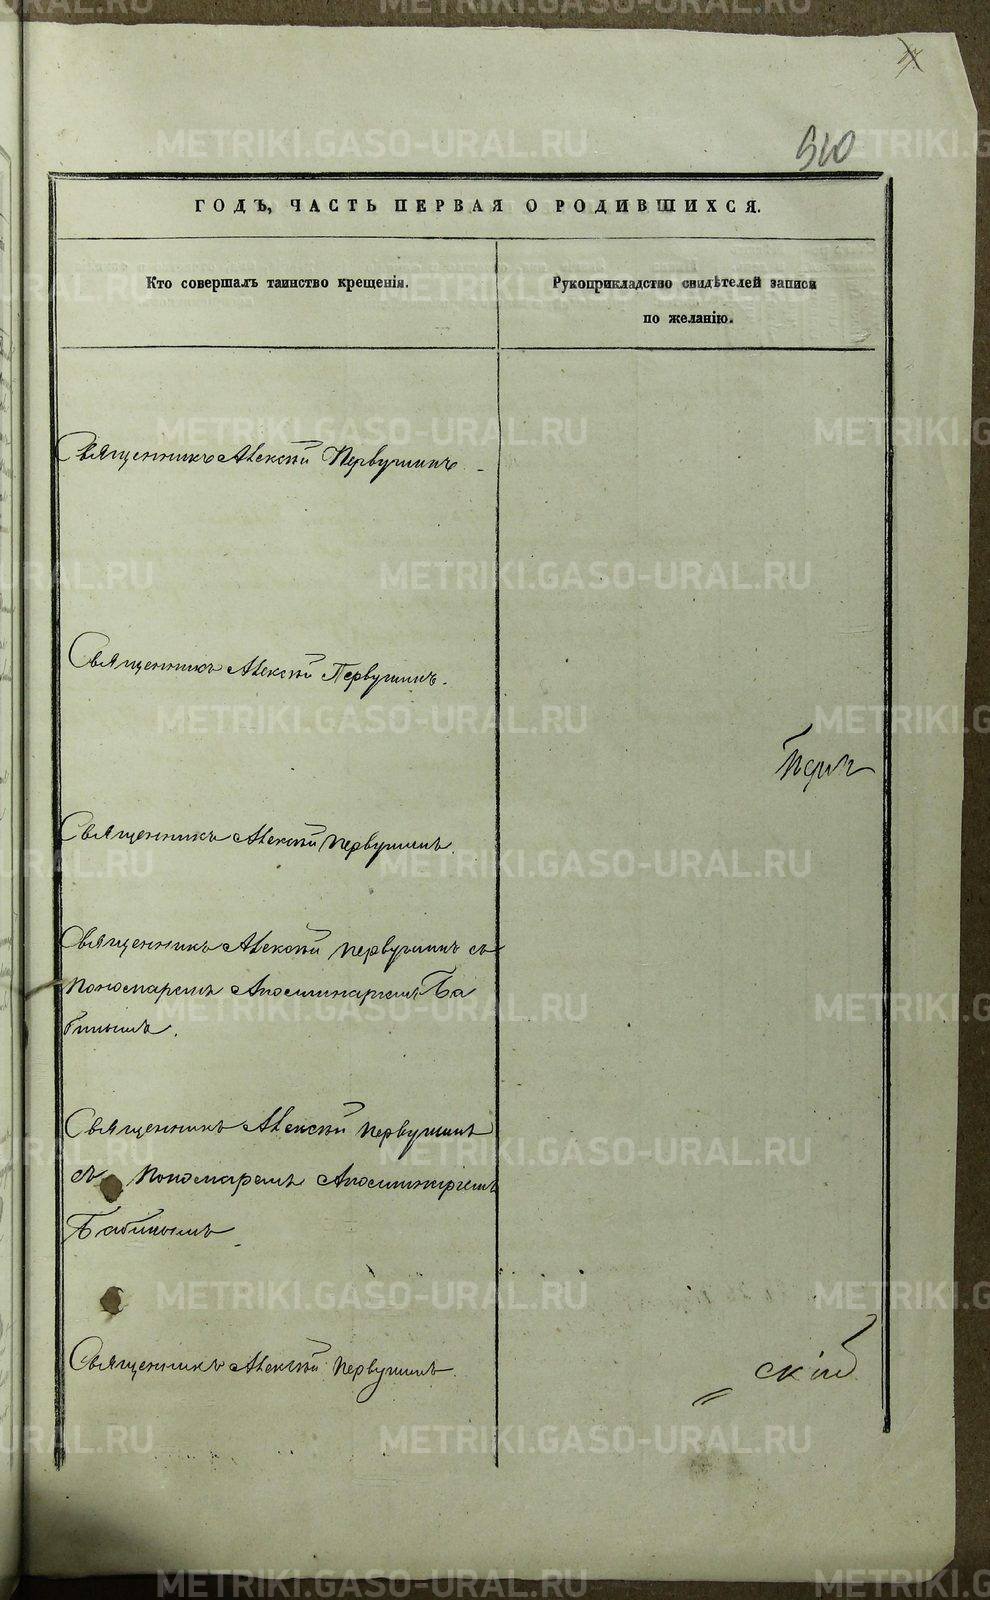 510
ГОДЪ, ЧАСТЬ ПЕРВАЯ О РОДИВШИХСЯ.
Кто совершалъ таинство крещенія.
Рукоприкладство свидѣтелей записи
по желанію.
Священникъ Алексѣй Первушинъ
Священникъ Алексѣй Первушинъ.
Священникъ Алексѣй Первушинъ.
Священникъ Алексѣй Первушинъ съ
Пономаремъ Аполлинаріемъ Ба
бинымъ.
Священникъ Алексѣй Первушинъ
съ Пономаремъ Аполлинаріемъ
Бабинымъ
Священникъ Алексѣй Первушинъ.
скій
METRIKI.GASO-URAL.RU